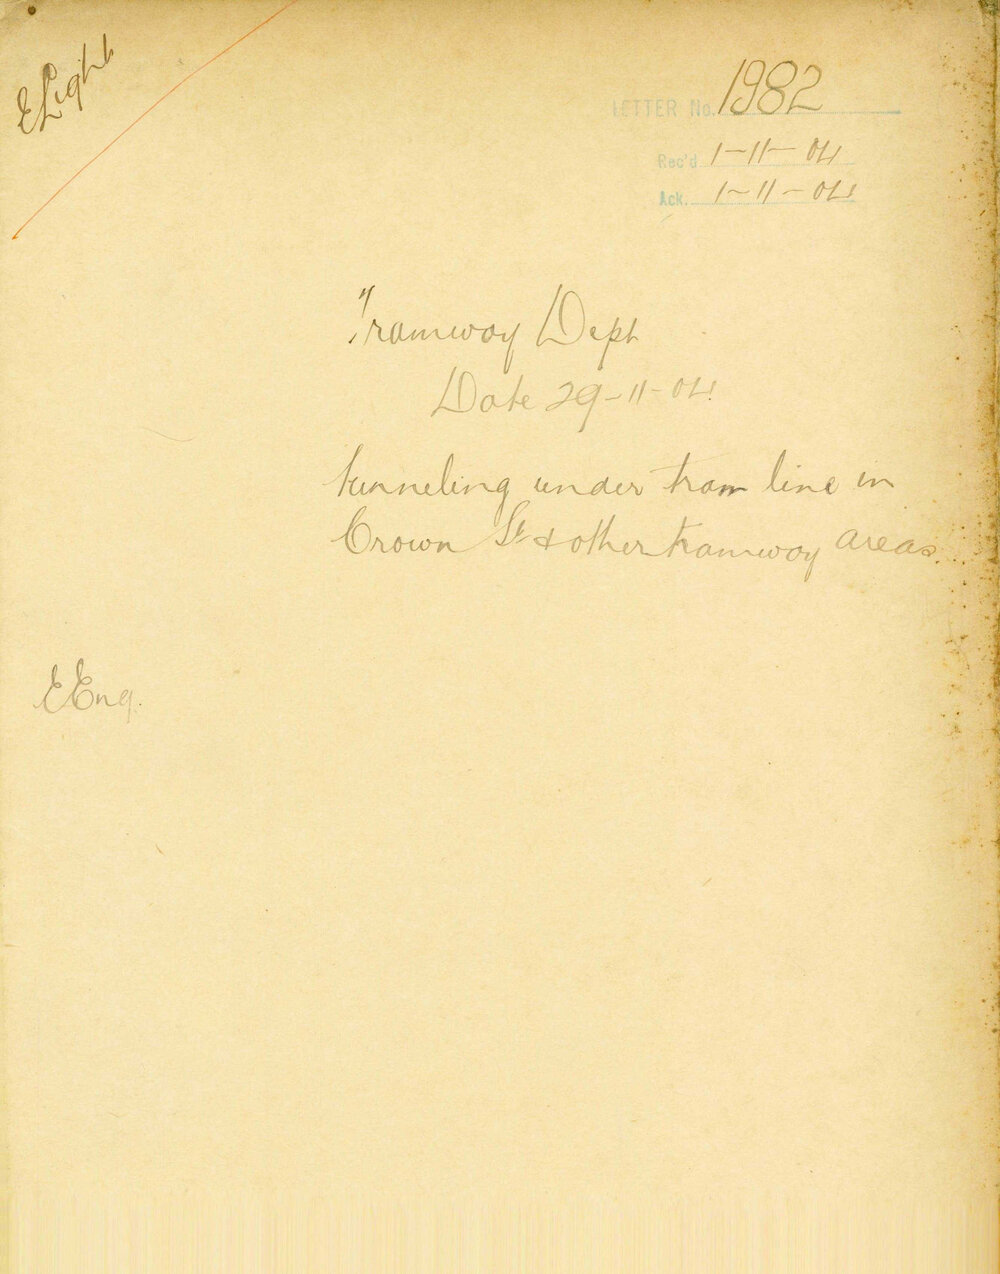 ELight
LETTER No. 1982
Rec'd 1-11-04
Ack. 1-11-04
Tramway Dept
Date 29-11-04
tunneling under tram line in
Crown St & other tramway areas.
EEng.